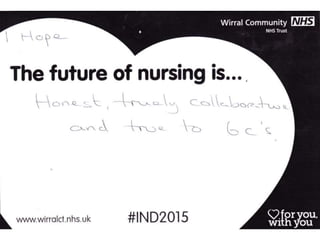 Wirral Community NHS
NHS Trust
I Hope
The future of nursing is...
Honest, truely collaborative
and true to 6c's.
www.wirralct.nhs.uk
#IND2015
for you,
with you